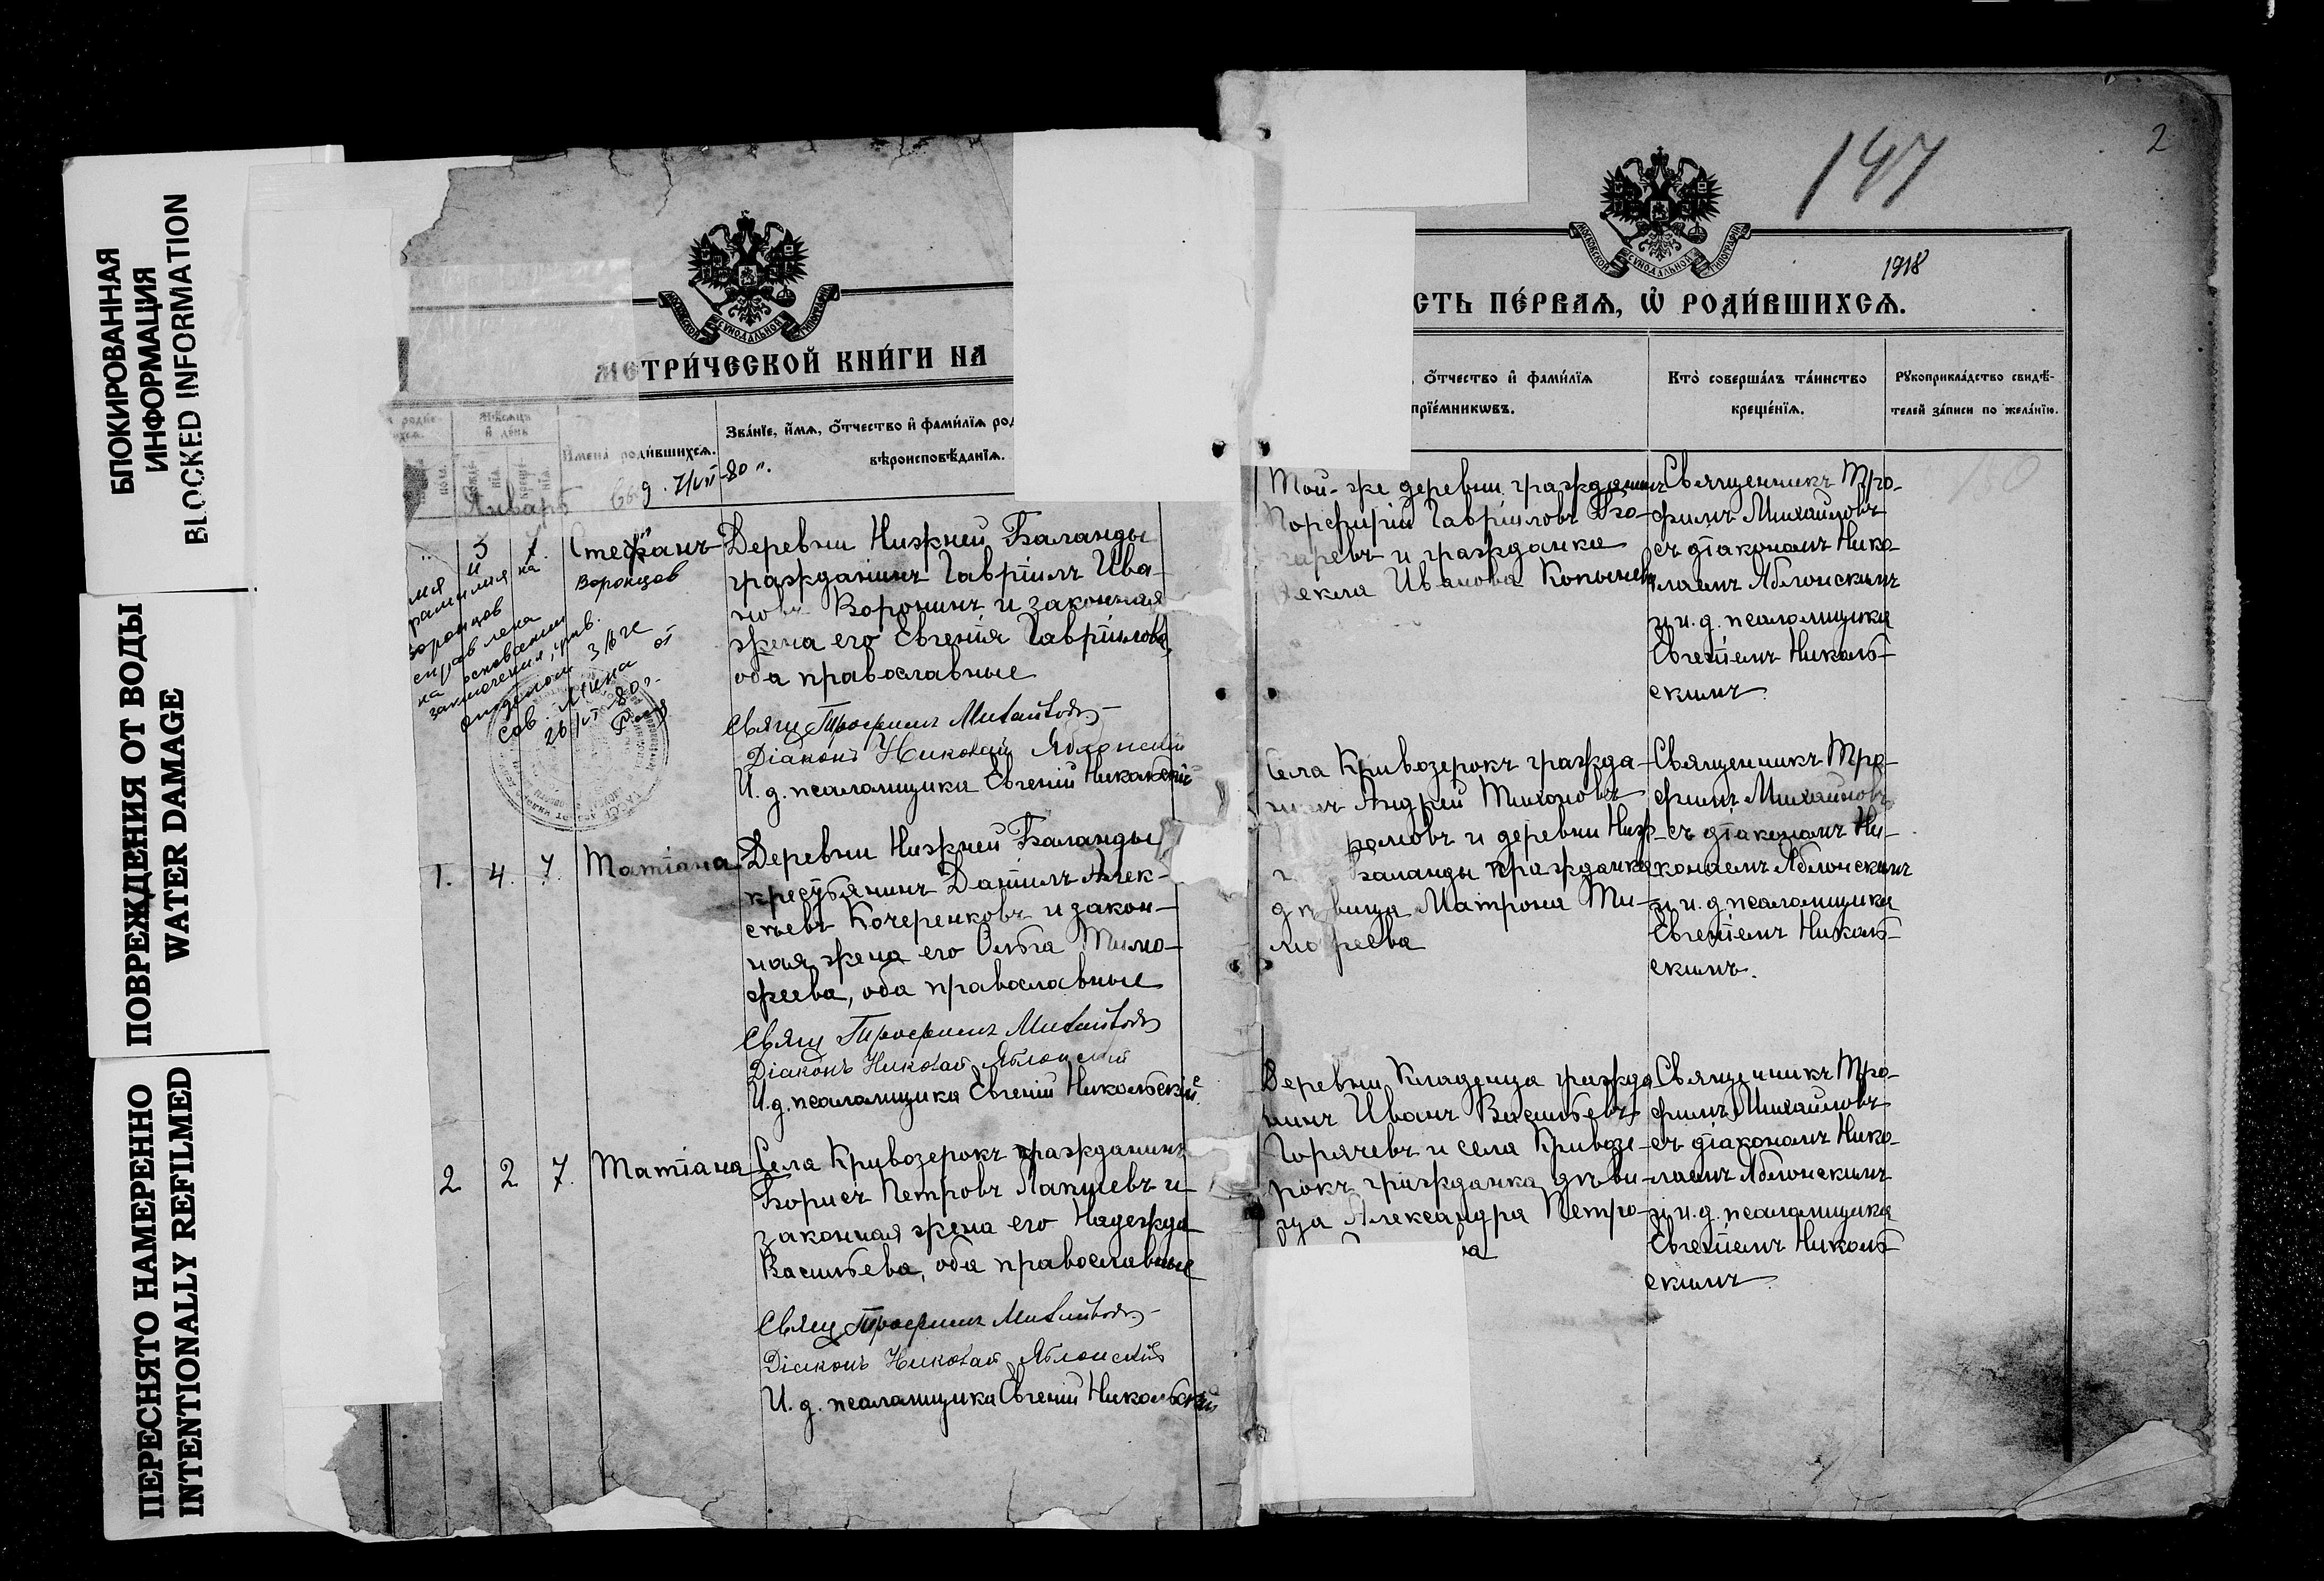 БЛОКИРОВАННАЯ
ИНФОРМАЦИЯ
BLOCKED INFORMATION
ПОВРЕЖДЕНИЯ ОТ ВОДЫ
WATER DAMAGE
ПЕРЕСНЯТО НАМЕРЕННО
INTENTIONALLY REFILMED
МОСКОВСКОЙ СѴНОДАЛЬНОЙ ТИПОГРАФІИ
МЕТРИ́ЧЕСКОЙ КНИ́ГИ НА
Мѣсяцъ
и҆ де́нь
Имена̀ роди́вшихсѧ.
Зва́нїе, и҆́мѧ, ѻ҆́тчество и҆ фами́лїѧ род
вѣроисповѣ́данїѧ.
Январь
7/VII-80 г.
5 7. Стефанъ
Воронцов
Деревни Нижней Баланды
гражданинъ Гавріилъ Ива-
новъ Воронинъ и законная
жена его Евгенія Гавріилова,
оба православные
Свящ Трофимъ Михайловъ
Діаконъ Николай Яблонскій
И. д. псаломщика Евгеній Никольскій
фамилия на
Воронцов
исправлена
на основании
заключения, утв.
отделом ЗАГС
Сов. Мина от
26/VI-80 г.
1. 4. 7. Татіана
Деревни Нижней Баланды
крестьянинъ Даніилъ Алек-
сѣевъ Кочеренковъ и закон-
ная жена его Ольга Тимо-
феева, оба православные
Свящ Трофимъ Михайловъ
Діаконъ Николай Яблонскій
И. д. псаломщика Евгеній Никольскій
2 2 7. Татіана
Села Кривозерокъ гражданинъ
Борисъ Петровъ Лакшевъ и
законная жена его Надежда
Васильева, оба православные
Свящ Трофимъ Михайловъ
Діаконъ Николай Яблонскій
И. д. псаломщика Евгеній Никольскій
147
2
МОСКОВСКОЙ СѴНОДАЛЬНОЙ ТИПОГРАФІИ
1918
СТЬ ПЕ́РВАѦ, Ѡ҆ РОДИ́ВШИХСѦ.
ѻ҆́тчество и҆ фами́лїѧ
прїе́мникѡвъ.
Кто̀ соверша́лъ та́инство
креще́нїѧ.
Рꙋкоприкла́дство свидѣ́-
телей за́писи по жела́нїю.
150
Той-же деревни гражданинъ
Порфирій Гавріиловъ
и гражданка
Ѳекла Иванова
Священникъ Тро-
фимъ Михайловъ
съ діакономъ Нико-
лаемъ Яблонскимъ
и и. д. псаломщика
Евгеніемъ Николь-
скимъ
Села Кривозерокъ гражда-
нинъ Андрей Тихоновъ
и деревни Ниж-
Баланды гражданка
дѣвица Матрона Ти-
мофеева
Священникъ Тро-
фимъ Михайловъ
съ діакономъ Ни-
колаемъ Яблонскимъ
и и. д. псаломщика
Евгеніемъ Николь-
скимъ.
Деревни Кладенца гражда
нинъ Иванъ Васильевъ
Горячевъ и села Кривозе-
рокъ гражданка дѣви-
ца Александра Петро-
ва
Священникъ Тро-
фимъ Михайловъ
съ діакономъ Нико-
лаемъ Яблонскимъ
и и. д. псаломщика
Евгеніемъ Николь-
скимъ